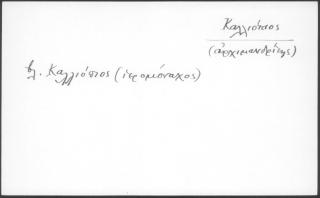 Καλλιόπιος
(ἀρχιμανδρίτης)
βλ. Καλλιόπιος (ἱερομόναχος)